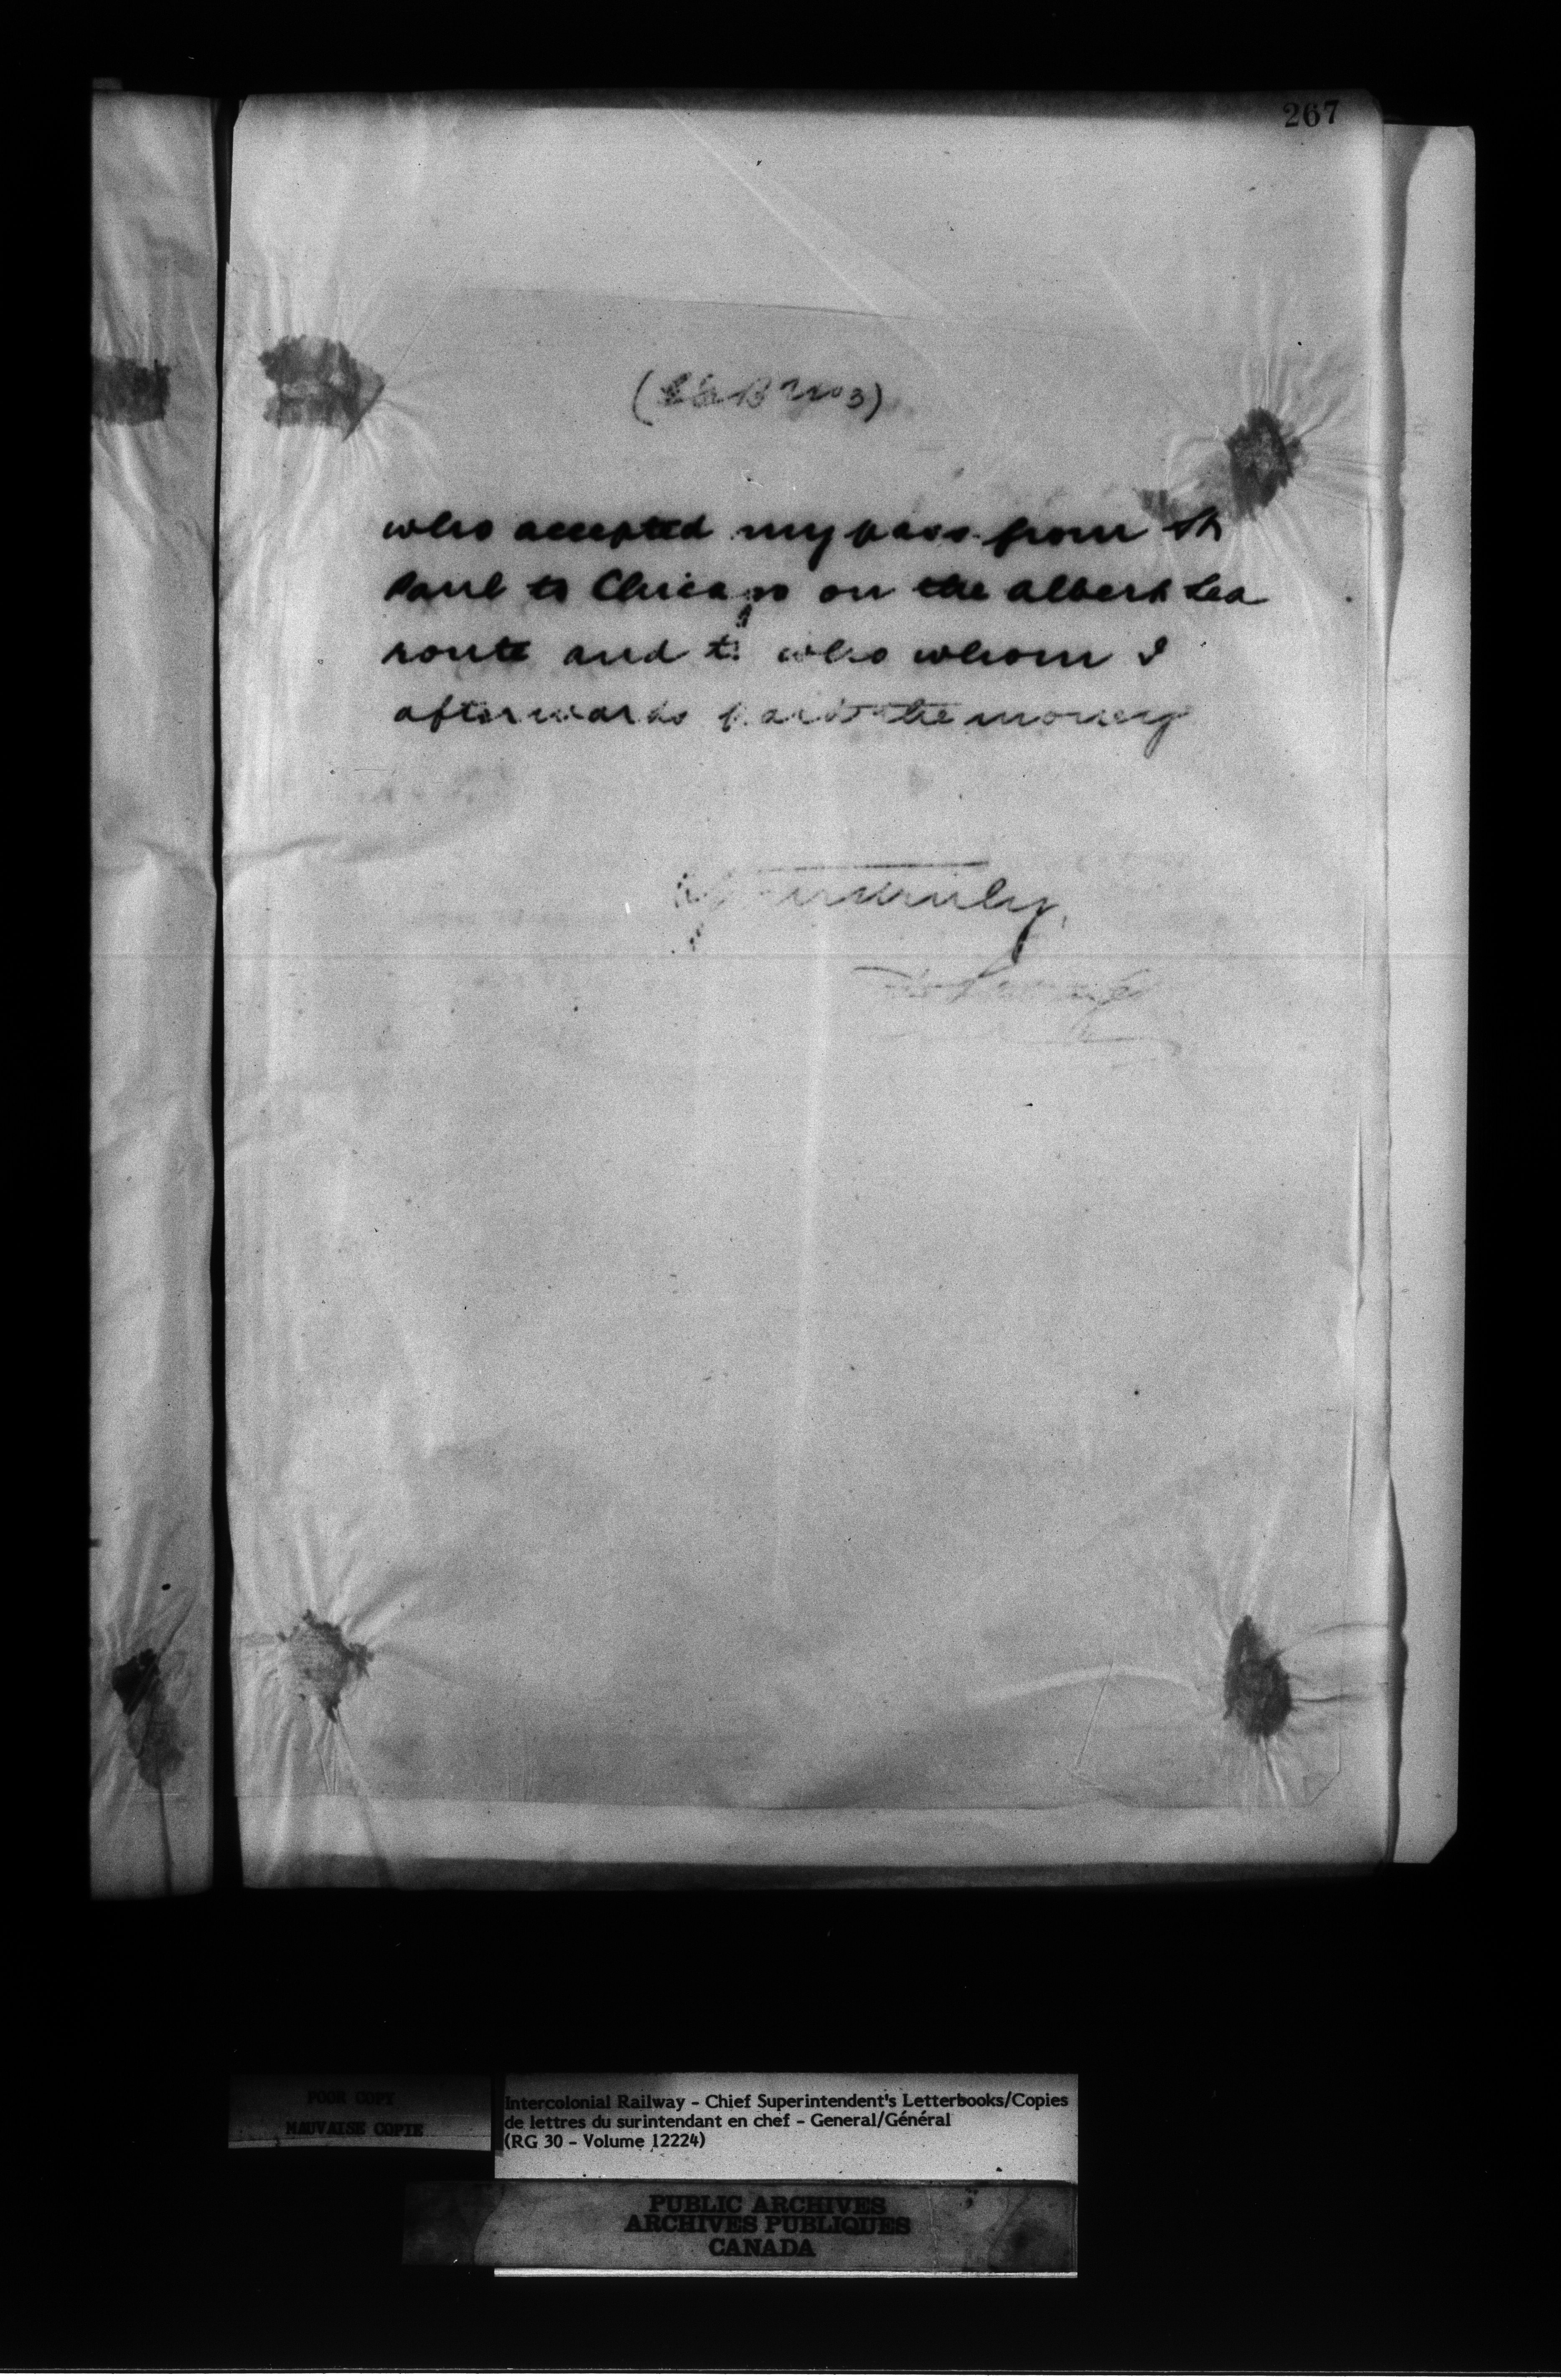 267
(  B No 3)
who accepted my pass from St
Paul to Chicago on the Albert Lea
route and to who whom I
afterwards paid the money
Yours truly,
POOR COPY
MAUVAISE COPIE
Intercolonial Railway - Chief Superintendent's Letterbooks/Copies
de lettres du surintendant en chef - General/Général
(RG 30 - Volume 12224)
PUBLIC ARCHIVES
ARCHIVES PUBLIQUES
CANADA